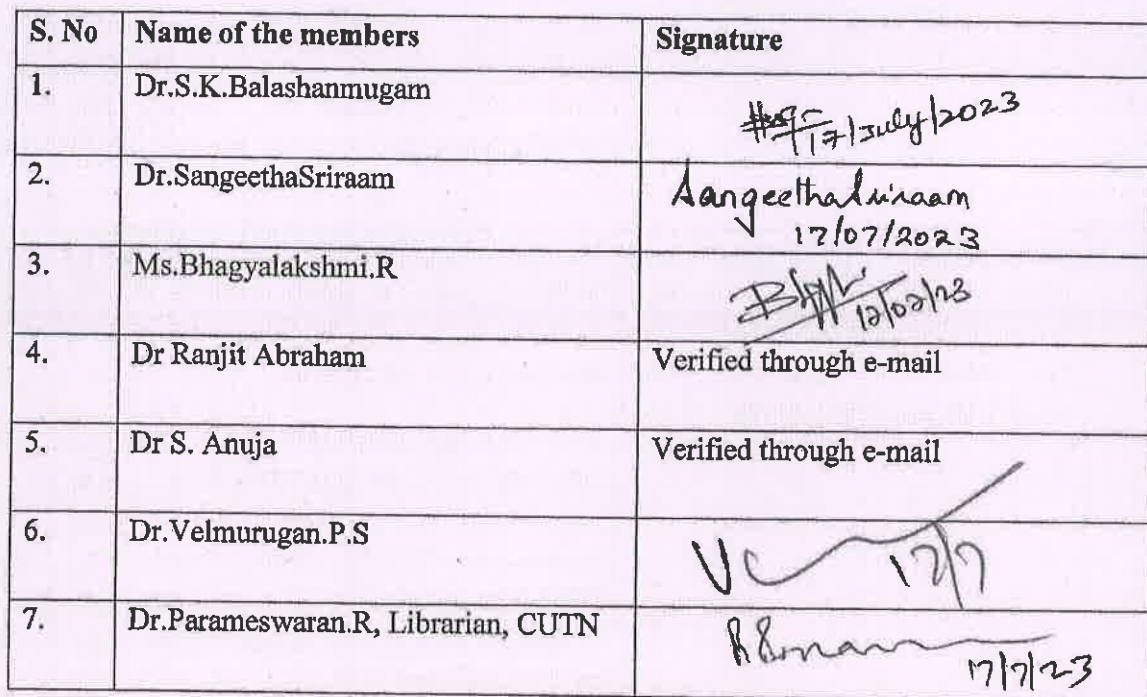 S. No Name of the members Signature
1. Dr.S.K.Balashanmugam
17/July/2023
2. Dr.SangeethaSriraam Sangeetha Sriraam
17/07/2023
3. Ms.Bhagyalakshmi.R
4. Dr Ranjit Abraham Verified through e-mail
5. Dr S. Anuja Verified through e-mail
6. Dr.Velmurugan.P.S
17/7
7. Dr.Parameswaran.R, Librarian, CUTN
17/7/23